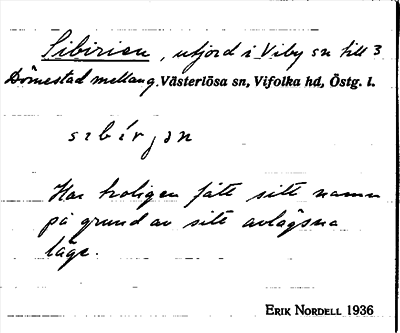 Sibirien, utjord i Viby sn till 3
Dömestad mellang. Västerlösa sn, Vifolka hd, Östg. l.
sibírjan
Har troligen fått sitt namn
på grund av sitt avlägsna
läge.
ERIK NORDELL 1936